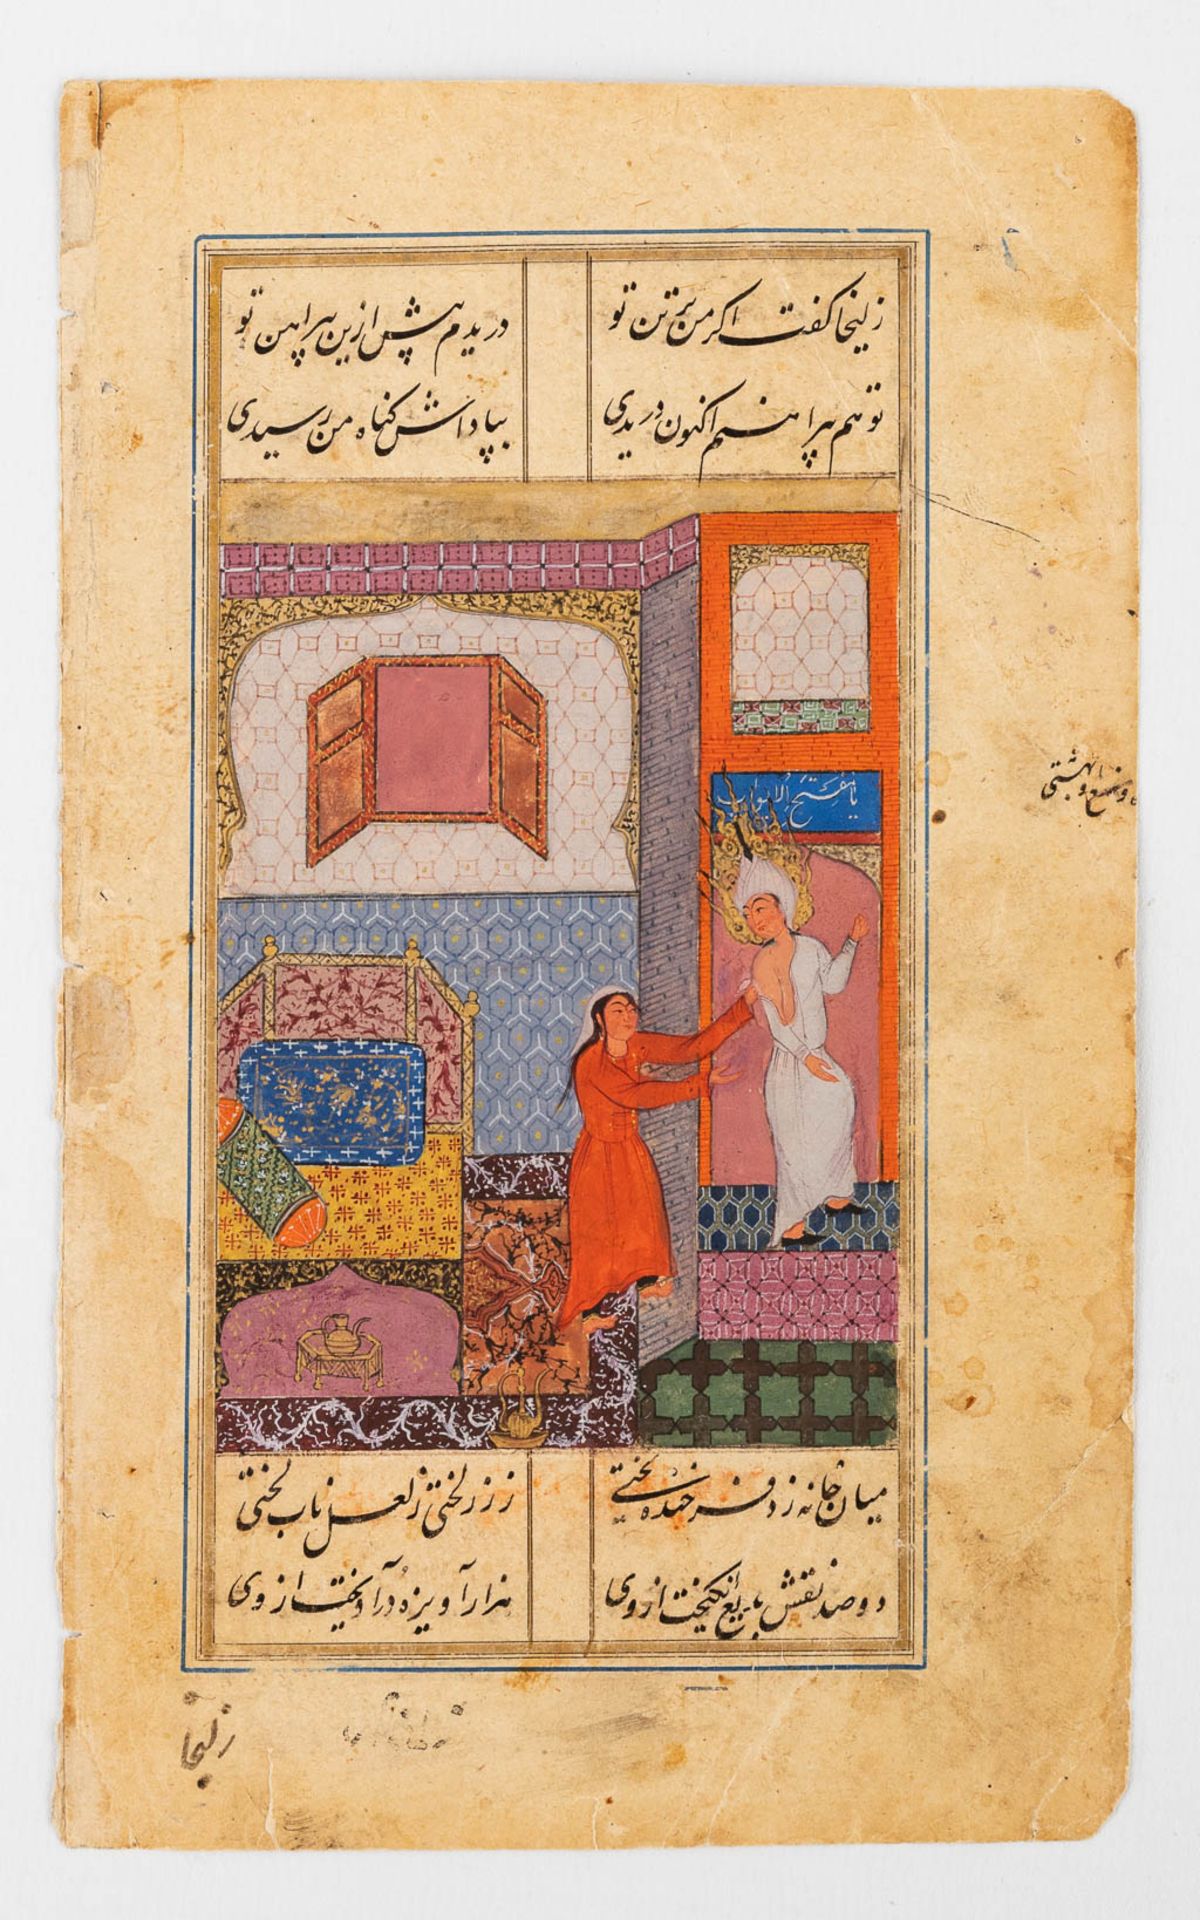 زلیخا گفت اگر من بر تن تو
دریدم پیش ازین پیراهن تو
تو هم پیراهنم اکنون دریدی
بپاداش گناه من رسیدی
یا مفتح الابواب
میان خانه زد فرخنده تختی
ز زر لختی ز لعل ناب لختی
دو صد نقش بدیع انگیخت از وی
هزار آویزه در آویخت از وی
زلیخا